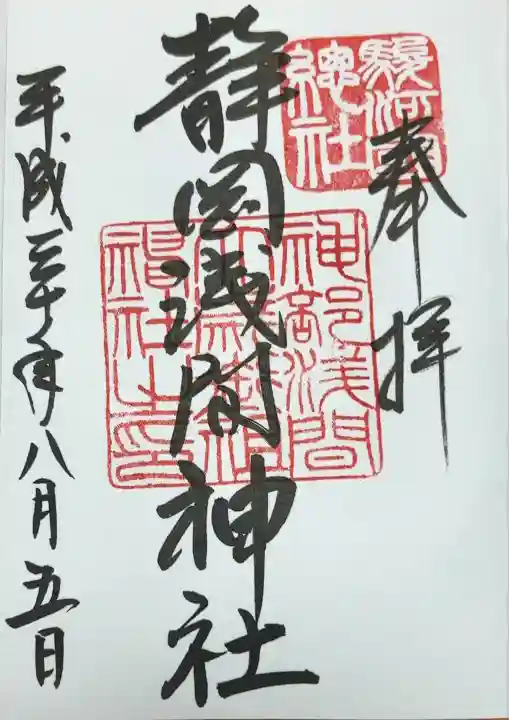 奉拝
駿河國
總社
静岡浅間神社
神部浅間
大歳御祖
神社之印
平成三十年八月五日